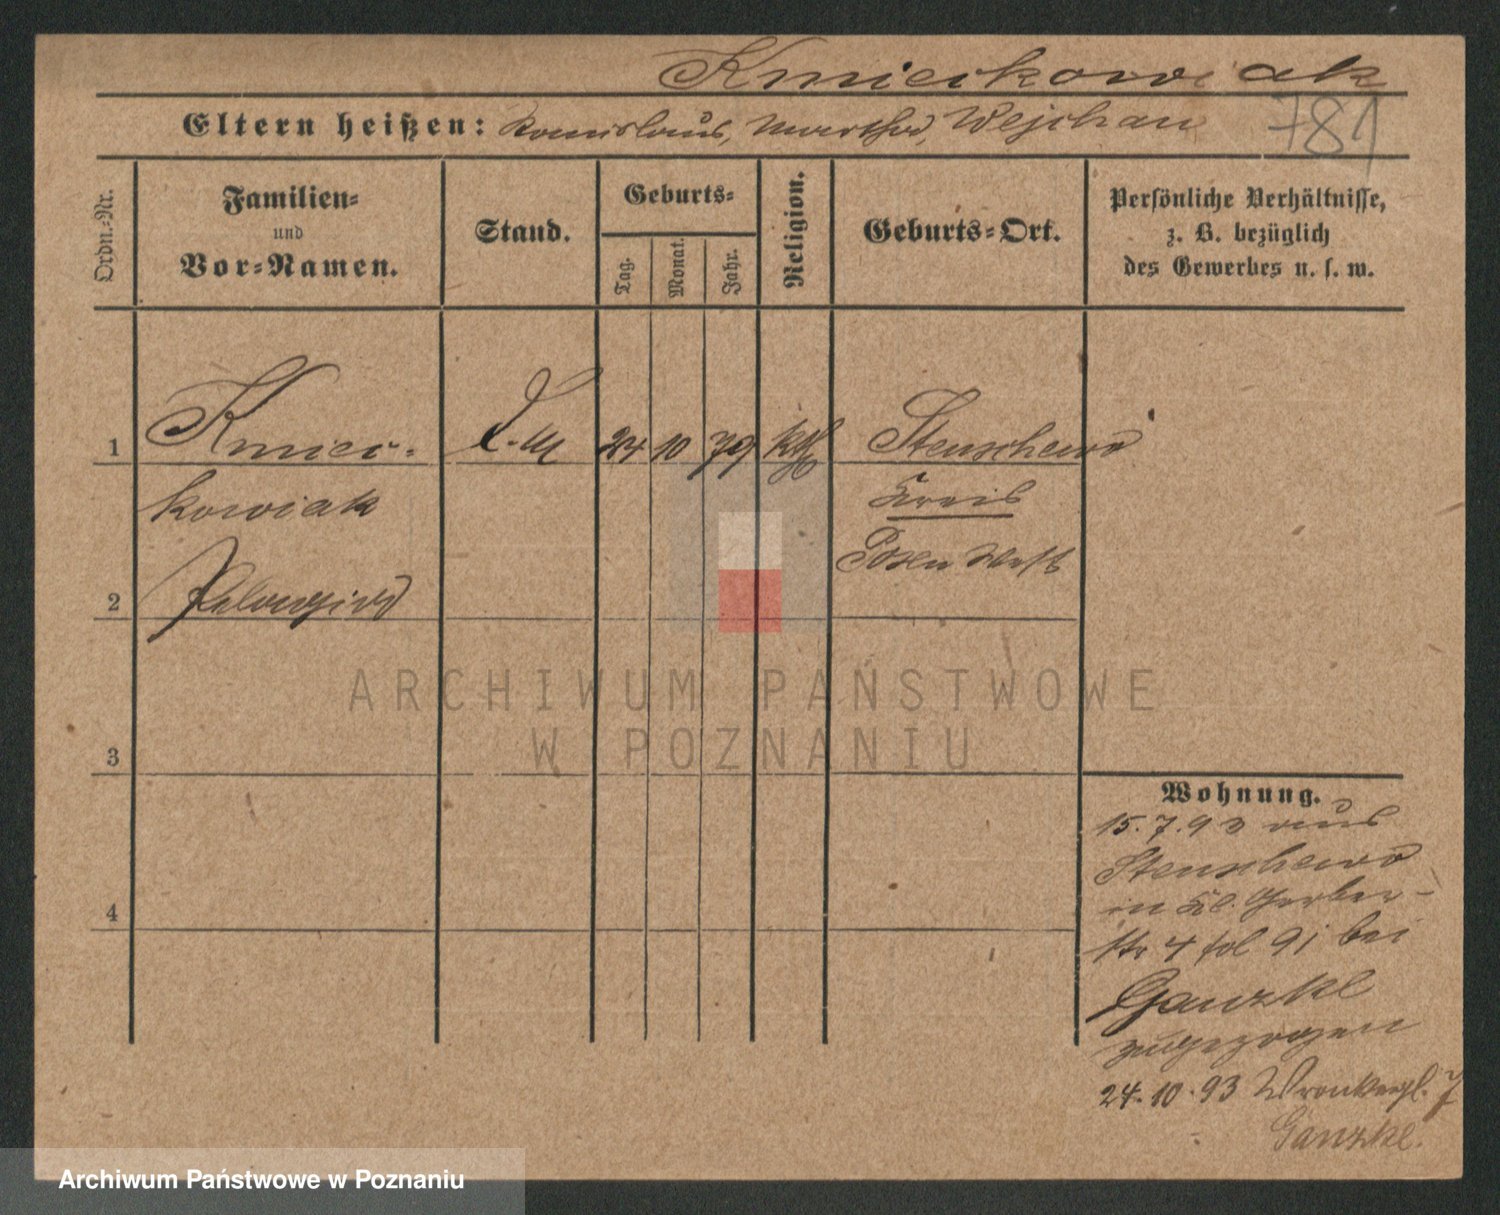 Kmieckowiak
Eltern heißen: Stanislaus, Martha, Wejchan
781
Ordn.-Nr.
Familien-
und
Vor-Namen.
Stand.
Geburts-
Tag.
Monat.
Jahr.
Religion.
Geburts-Ort.
Persönliche Verhältnisse,
z. B. bezüglich
des Gewerbes u. s. w.
1
Kmiec-
kowiak
Pelagia
D. M
24
10
79
kth
Stenschewo
Kreis
Posen West
2
3
4
Wohnung.
15.7.93 aus
Stenschewo
in Kl. Gerber-
str 4 fol 91 bei
Ganzke
zugezogen
24.10.93 Wronkerpl. 7
Ganzke.
ARCHIWUM PAŃSTWOWE
W POZNANIU
Archiwum Państwowe w Poznaniu